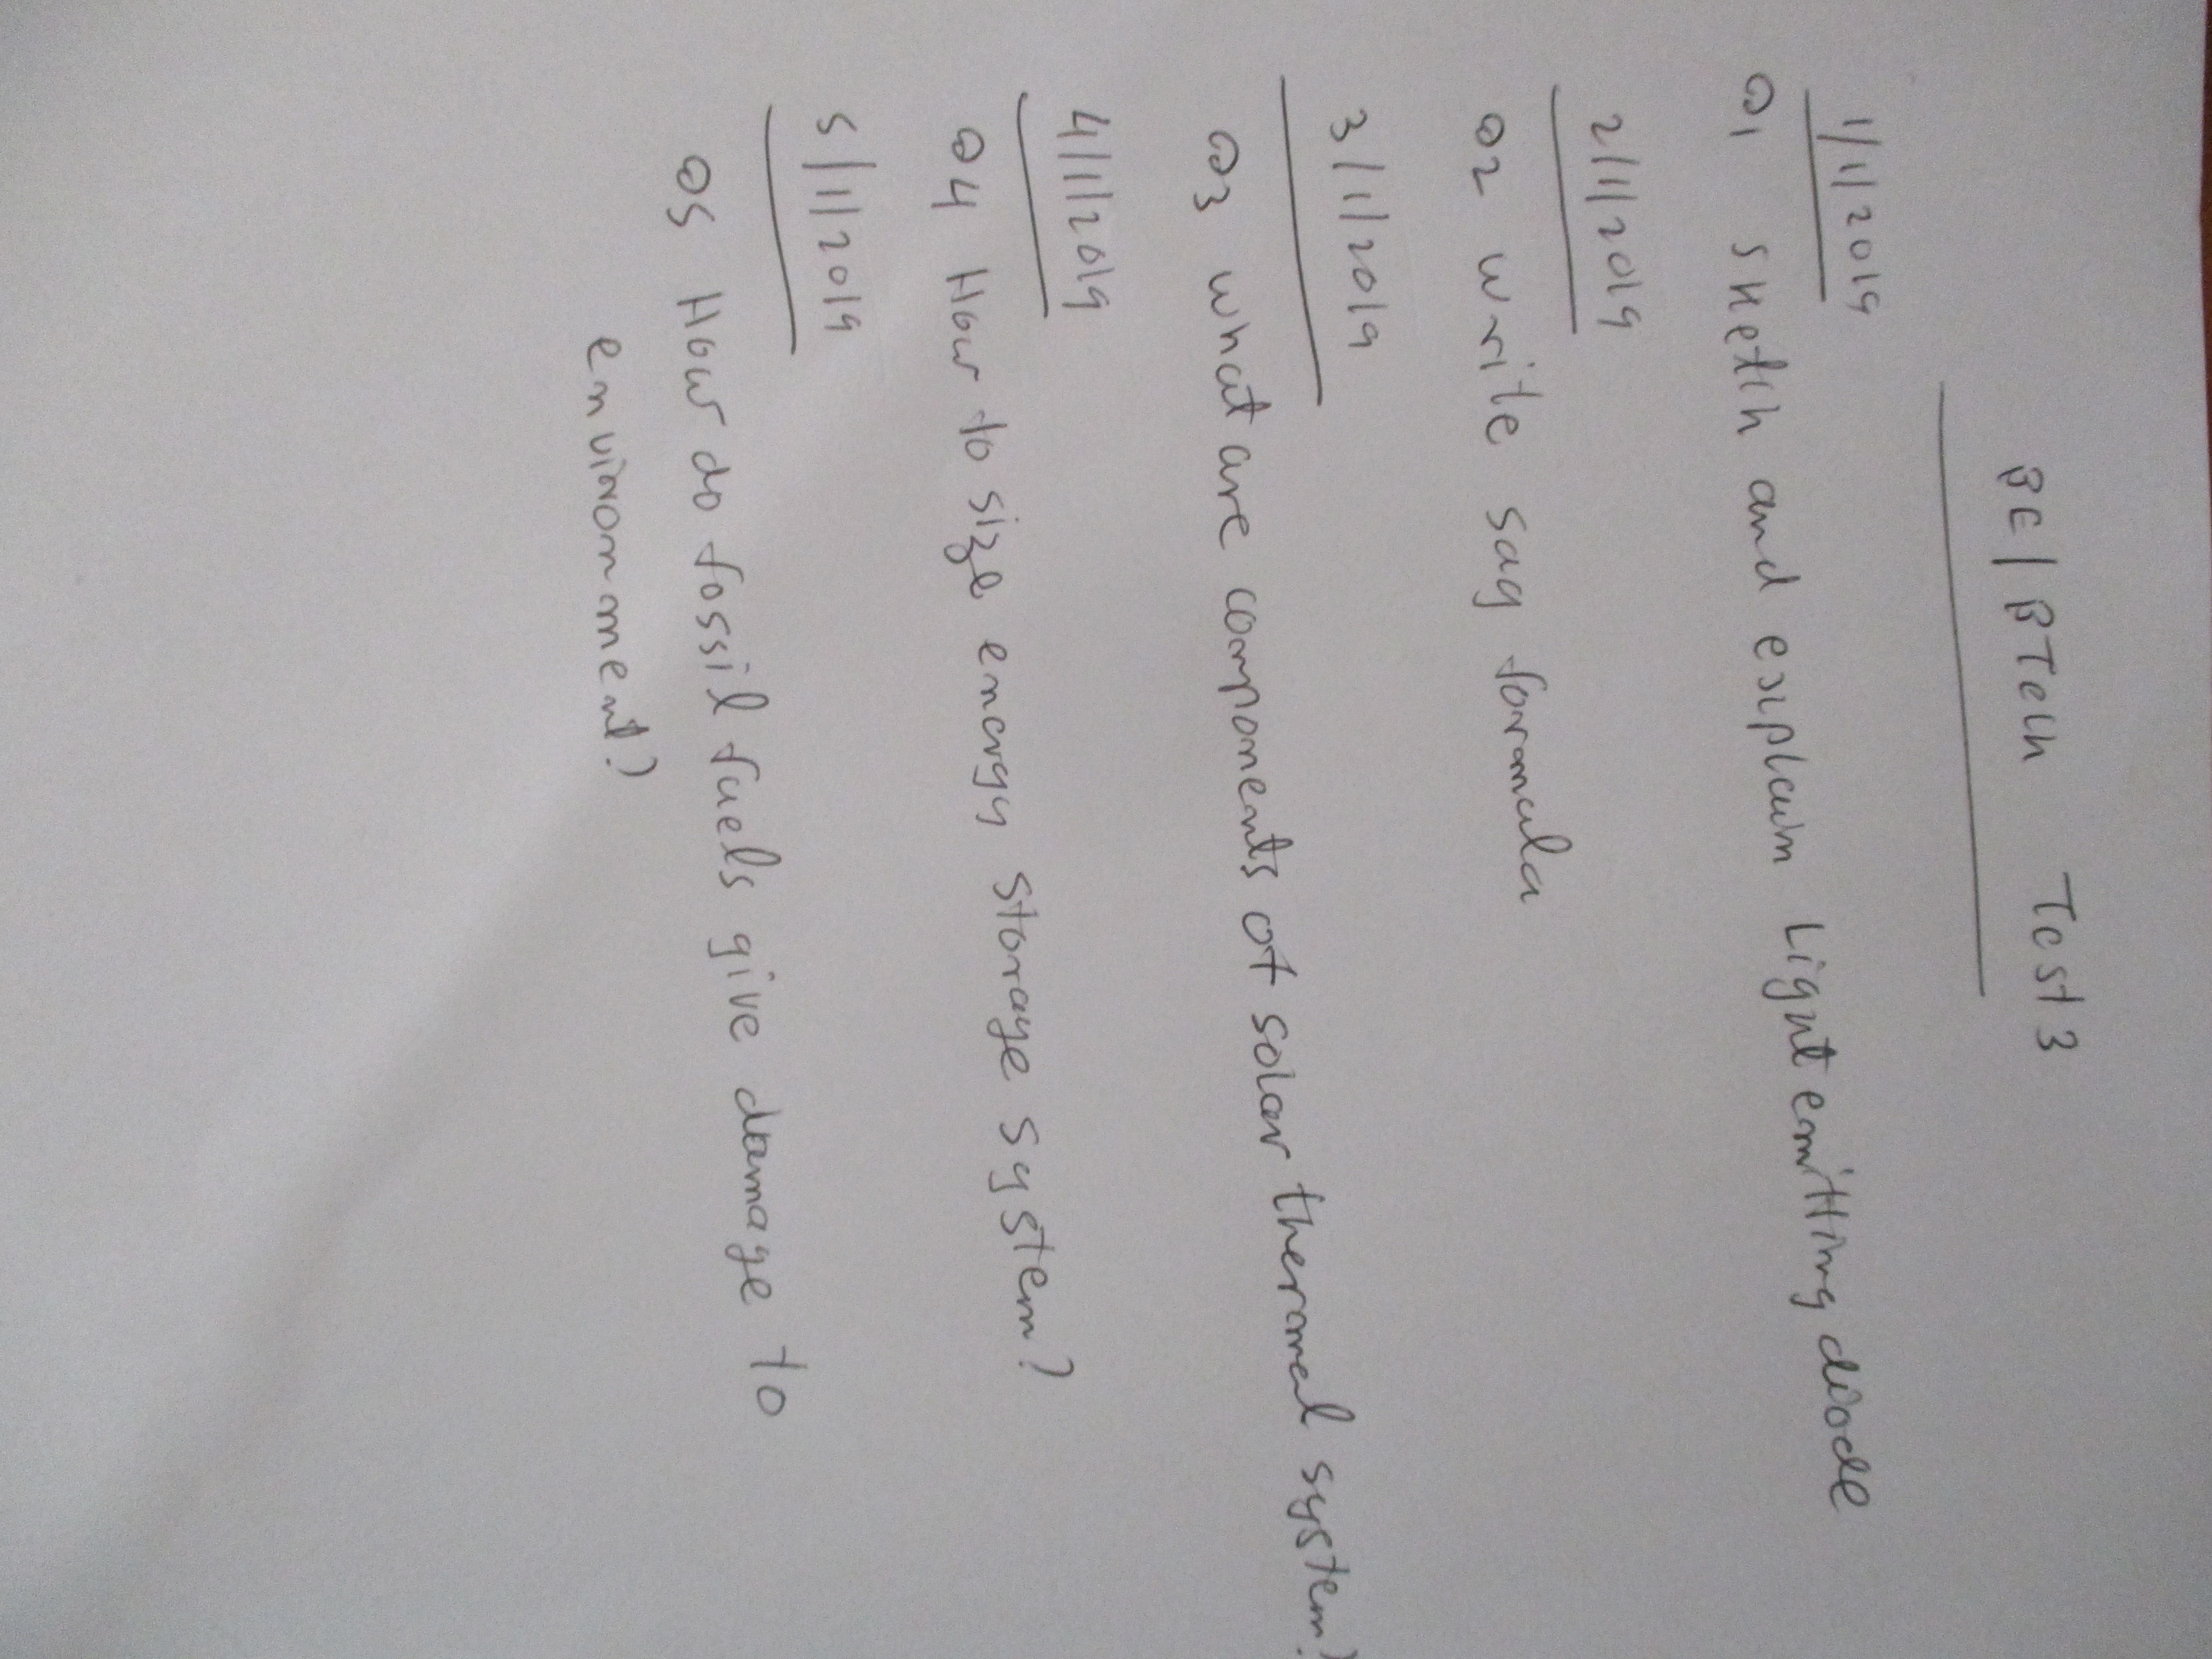 BE/BTech Test 3
1/1/2019
Q1 sketch and explain Light emitting diode
2/1/2019
Q2 write sag formula
3/1/2019
Q3 what are components of solar thermal system?
4/1/2019
Q4 How to size energy storage system?
5/1/2019
Q5 How do fossil fuels give damage to
environment?